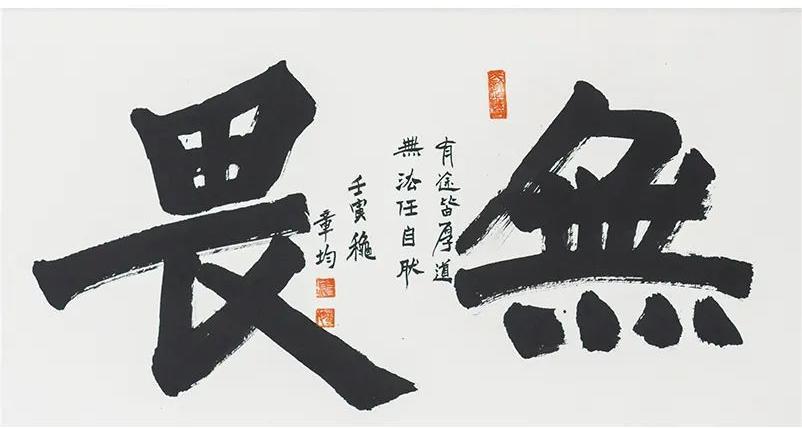 無畏
有途皆厚道
無法任自耿
壬寅穐
章均